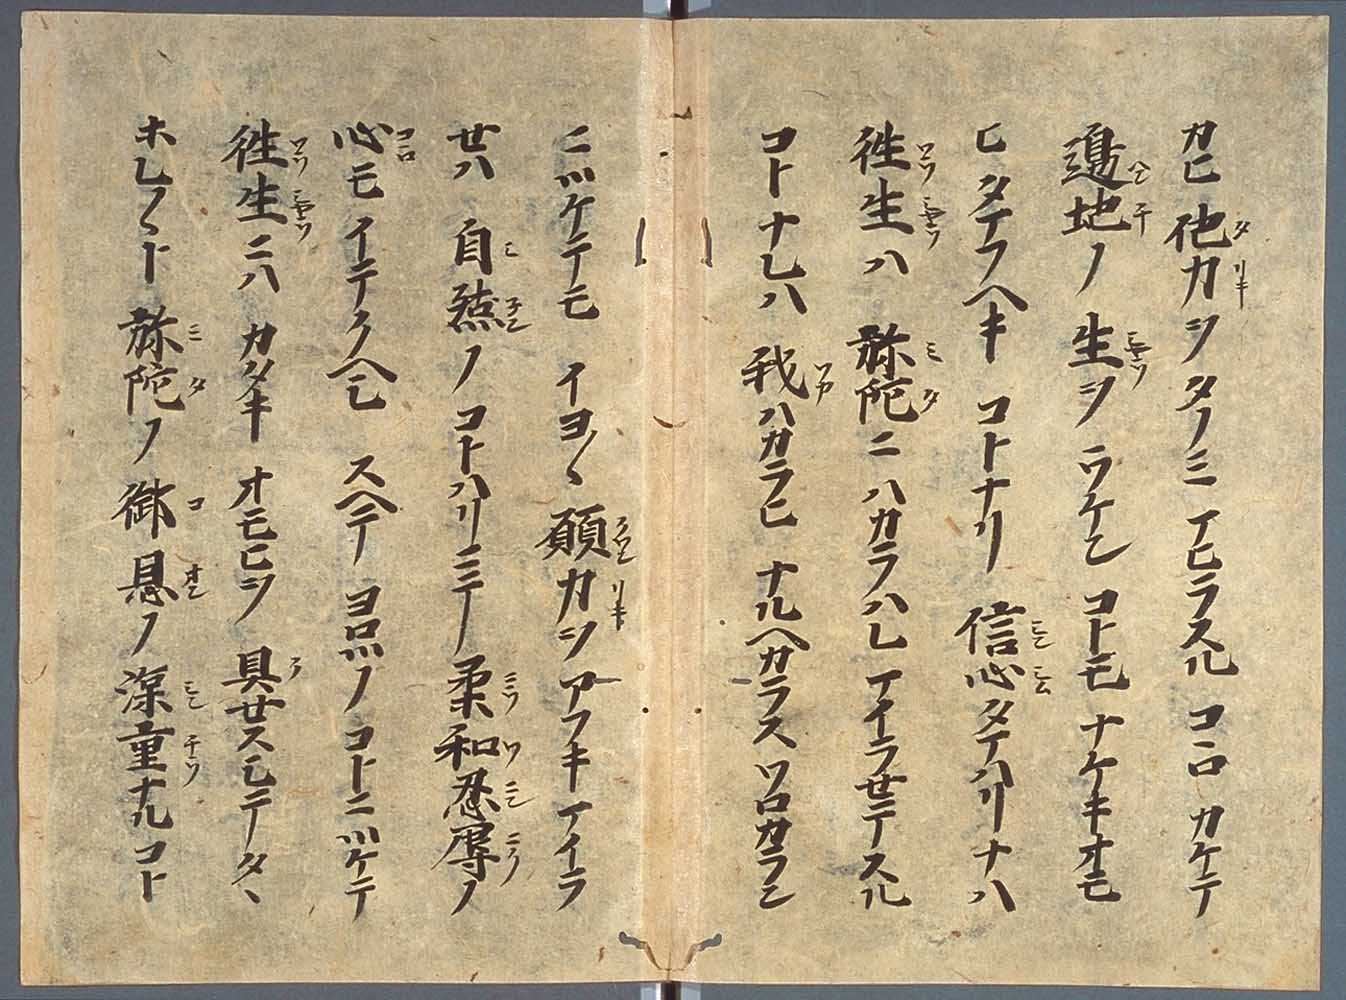 カヒ他力ヲタノミマヒラスルココロカケテ
邊地ノ生ヲウケンコトモナケキオモ
ヒタマフヘキコトナリ信心サタマリナハ
徃生ハ弥陀ニハカラハレマイラセテスル
コトナレハ我ハカラヒナルヘカラスワロカラン
ニツケテモイヨ〱願力ヲアフキマイラ
セハ自然ノコトハリニテ柔和忍辱ノ
心モイテクヘシスヘテヨロツノコトニツケテ
徃生ニハカシコキオモヒヲ具セスシテタヽ
ホレ〱ト弥陀ノ御恩ノ深重ナルコト